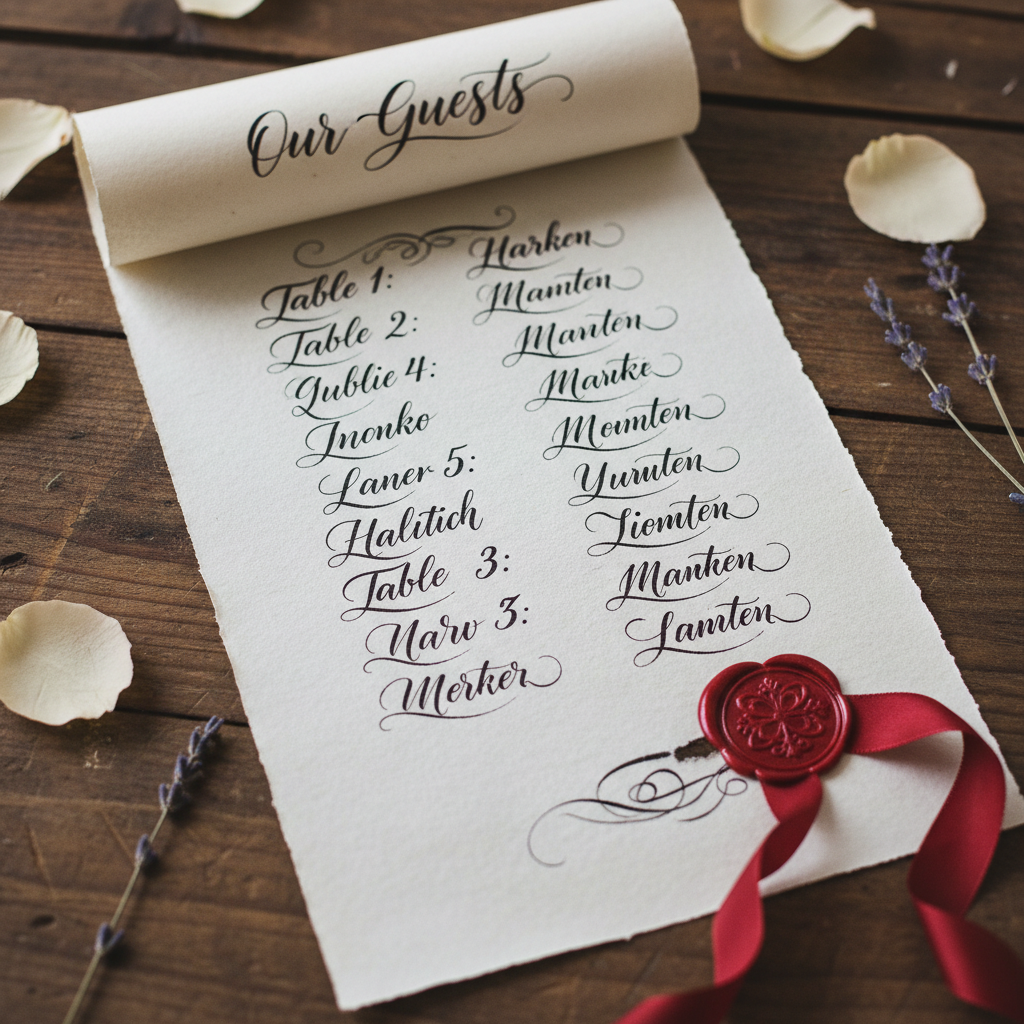 Our Guests
Table 1: Harken
Table 2: Mamten
Gublie 4: Manten
Jnonko Marike
Laner 5: Momnten
Halitich Yuruten
Table 3: Jiomten
Narv 3: Manken
Merker Lamten